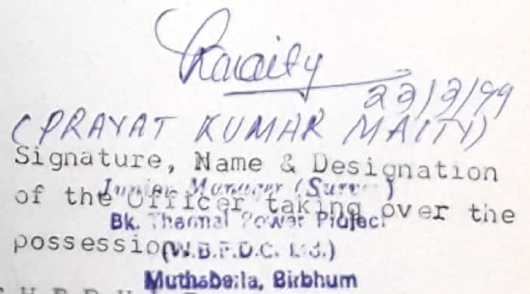 22/2/99
(PRAYAT KUMAR MAITY)
Signature, Name & Designation
of the Officer taking over the
Junior Manager (Surve )
Bk. Thermal Power Project
possession
(W.B.P.D.C. Ltd.)
Muthabeila, Birbhum